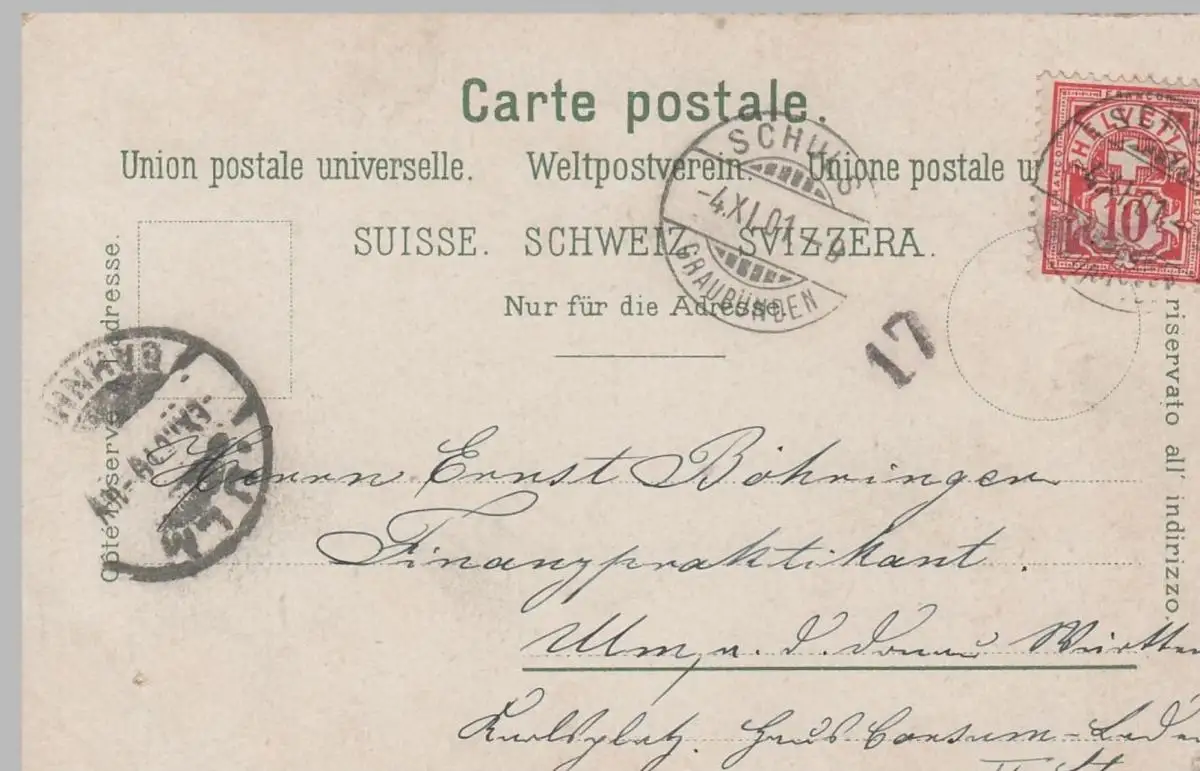 Carte postale.
Union postale universelle. Weltpostverein. Unione postale u
SUISSE. SCHWEIZ. SVIZZERA.
Nur für die Adresse.
SCHULS
-4.XI.01.-6
GRAUBÜNDEN
HELVETIA
10
17
Côté réservé à l'adresse.
riservato all' indirizzo.
ULM
BAHNH
Herrn Ernst Böhringer
Finanzpraktikant.
Ulm a. d. Donau Württem
Karlsplatz. Haus Consum-Laden